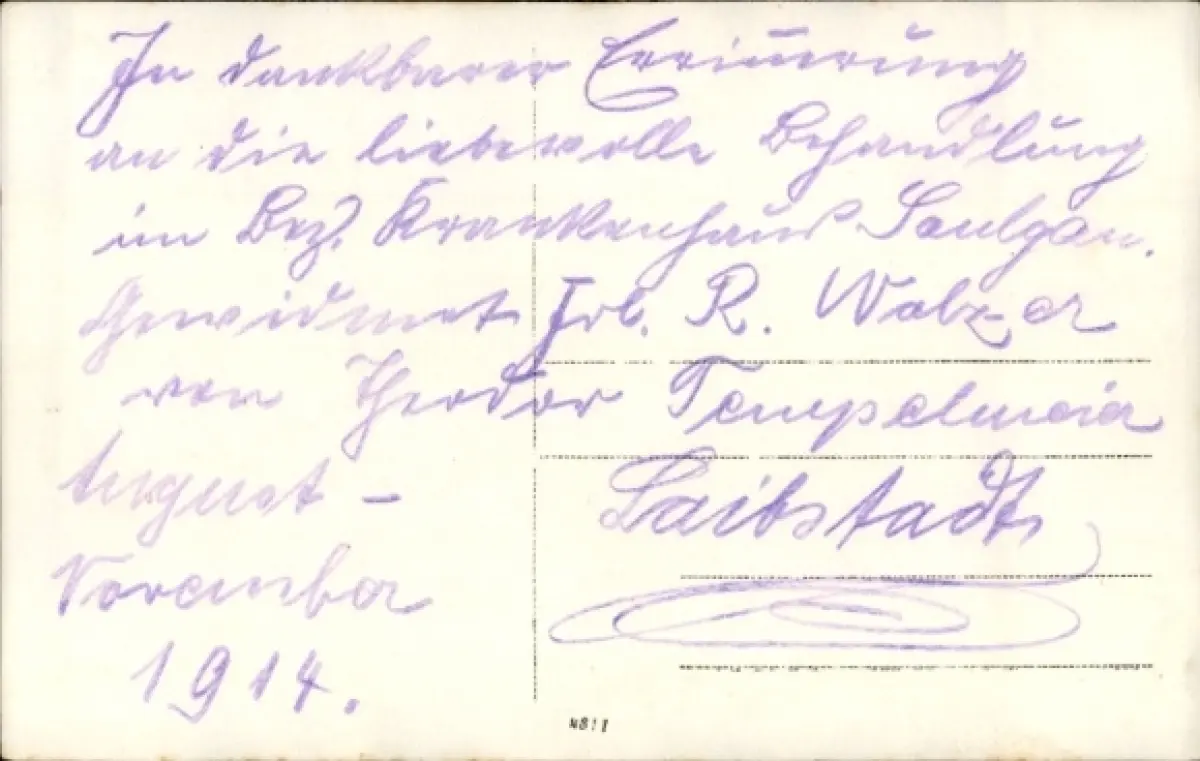 In dankbarer Erinnerung
an die liebevolle Behandlung
im Bez. Krankenhaus Saulgau.
Gewidmet Frl. R. Walzer
von Theodor Tempelmeier
August -
November
1914.
Laibstadt